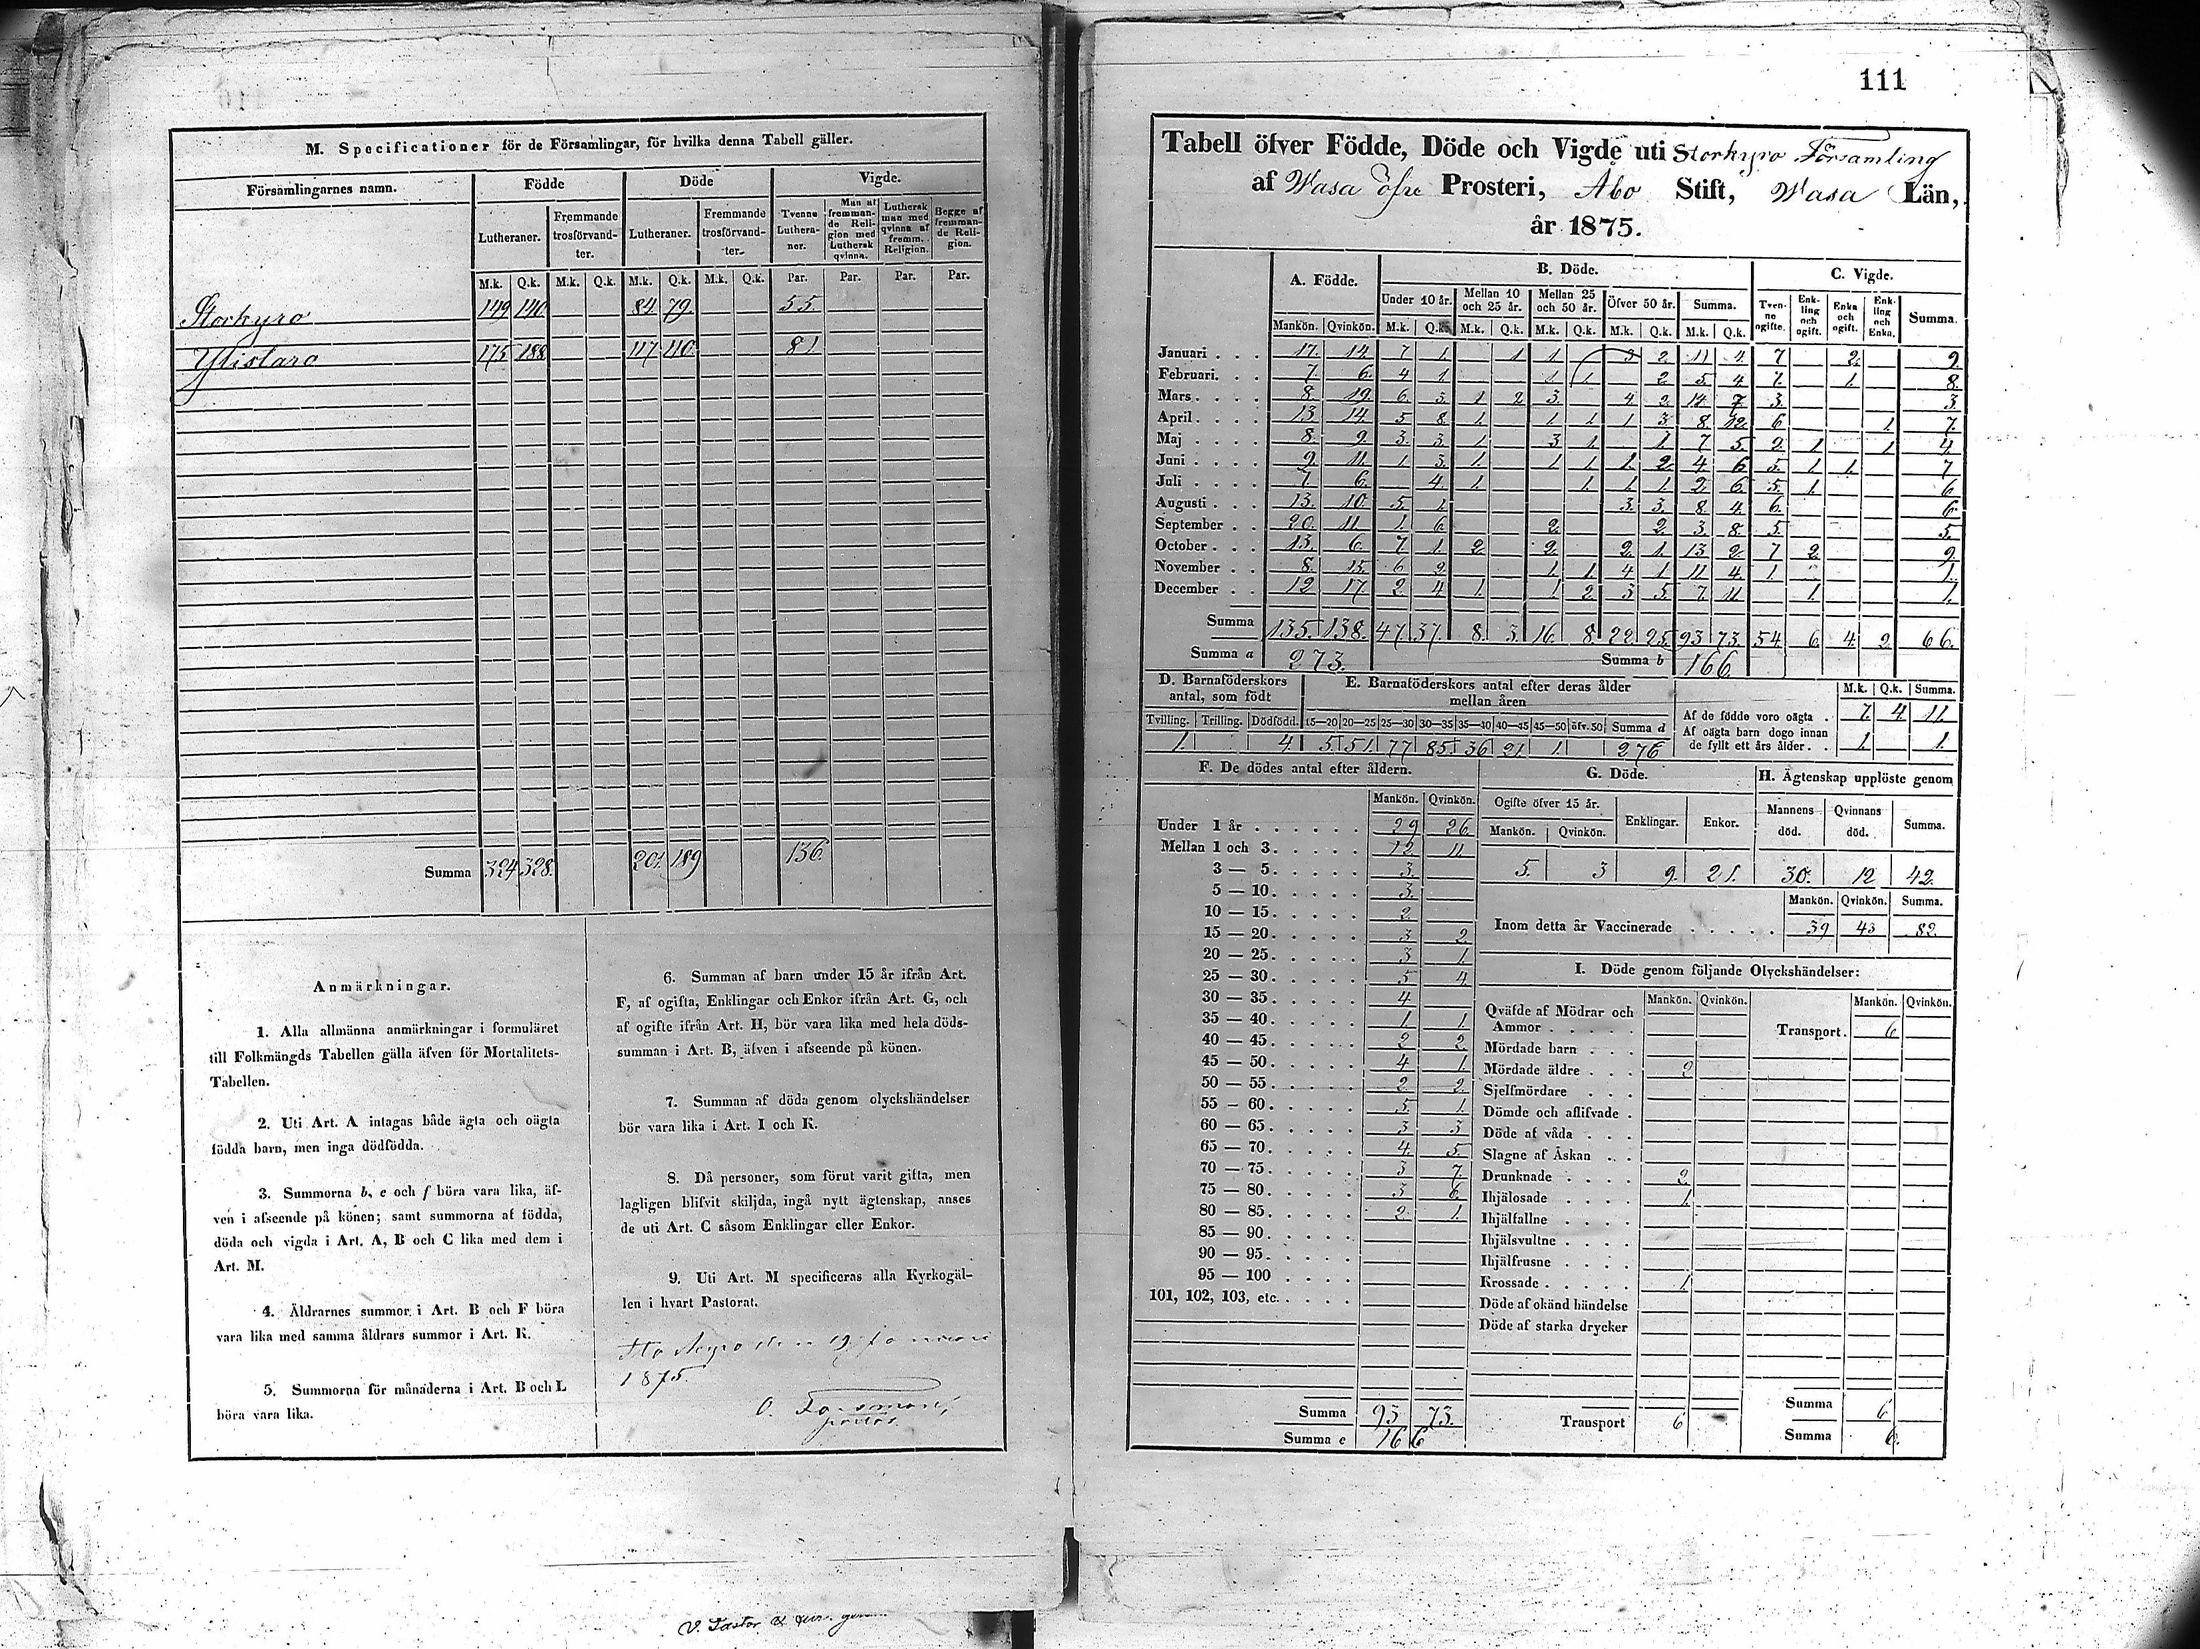 M. Specificationer för de Församlingar, för hvilka denna Tabell gäller.
Församlingarnes namn. Födde Döde Vigde.
Lutheraner. Fremmande trosförvandter. Lutheraner. Fremmande trosförvandter. Tvenne Lutheraner. Man af fremmande Religion med Luthersk qvinna. Luthersk man med qvinna af fremm. Religion. Begge af fremmande Religion.
M.k. Q.k. M.k. Q.k. M.k. Q.k. M.k. Q.k. Par. Par. Par. Par.
Storkyro 149 140 84 79. 55.
Ylistaro 175 188 117 110 81.
Summa 324 328. 201. 189 136.
Anmärkningar.
1. Alla allmänna anmärkningar i formuläret
till Folkmängds Tabellen gälla äfven för Mortalitets-
Tabellen.
2. Uti Art. A intagas både ägta och oägta
födda barn, men inga dödfödda.
3. Summorna b, e och f böra vara lika, äf-
ven i afseende på könen; samt summorna af födda,
döda och vigda i Art. A, B och C lika med dem i
Art. M.
4. Åldrarnes summor i Art. B och F böra
vara lika med samma åldrars summor i Art. K.
5. Summorna för månaderna i Art. B och L
böra vara lika.
6. Summan af barn under 15 år ifrån Art.
F, af ogifta, Enklingar och Enkor ifrån Art. G, och
af ogifte ifrån Art. H, bör vara lika med hela döds-
summan i Art. B, äfven i afseende på könen.
7. Summan af döda genom olyckshändelser
bör vara lika i Art. I och K.
8. Då personer, som förut varit gifta, men
lagligen blifvit skiljda, ingå nytt ägtenskap, anses
de uti Art. C såsom Enklingar eller Enkor.
9. Uti Art. M specificeras alla Kyrkogäl-
len i hvart Pastorat.
Storkyro den 19 januari
1875.
O. Forsman,
111
Tabell öfver Födde, Döde och Vigde uti Storkyro Församling
af Wasa öfre Prosteri, Åbo Stift, Wasa Län,
år 1875.
A. Födde. B. Döde. C. Vigde.
Under 10 år. Mellan 10 och 25 år. Mellan 25 och 50 år. Öfver 50 år. Summa. Tvenne ogifte. Enkling och ogift. Enka och ogift. Enkling och Enka. Summa.
Mankön. Qvinkön. M.k. Q.k. M.k. Q.k. M.k. Q.k. M.k. Q.k. M.k. Q.k.
Januari . . . 17. 14. 7 1. 1 1 3 2. 11 4. 7 2. 9.
Februari. . . 7. 6. 4 1 1 1 2 5. 4 7. 1. 8.
Mars . . . . 8. 19. 6 3. 1 2 3. 4 2. 14 7 3. 3.
April . . . . 13. 14. 5 8. 1. 1 1 1 3 8. 12. 6 1 7.
Maj . . . . 8. 9. 3 3. 1 3 1. 1. 7 5. 2. 1 1 4.
Juni . . . . 9. 11. 1 3. 1. 1 1 1. 2. 4 6 5. 1 1. 7
Juli . . . . 7. 6. 4. 1. 1. 1 1. 2. 6. 5. 1. 6
Augusti . . . 13. 10. 5. 1. 3. 3. 8. 4. 6. 6.
September . . 20. 11 1. 6. 2. 2. 3. 8. 5. 5.
October . . . 13. 6. 7 1. 2. 2. 2. 1. 13 2. 7 2. 9.
November . . 8. 15. 6 2 1. 1. 4 1 11 4. 1. 1.
December . . 12 17. 2 4 1. 1 2. 3 5. 7. 11 1. 1.
Summa 135. 138. 47. 37. 8. 3. 16 8 22 25. 93 73. 54 6. 4. 2. 66.
Summa a 273. Summa b 166
D. Barnaföderskors antal, som födt
E. Barnaföderskors antal efter deras ålder mellan åren
M.k. Q.k. Summa.
Tvilling. Trilling. Dödfödd. 15—20 20—25 25—30 30—35 35—40 40—45 45—50 öfv. 50 Summa d
1. 4. 5. 51. 77 85. 36 21. 1. 276
Af de födde voro oägta . 7. 4 11.
Af oägta barn dogo innan de fyllt ett års ålder . . 1. 1.
F. De dödes antal efter åldern. G. Döde. H. Ägtenskap upplöste genom
Mankön. Qvinkön.
Under 1 år . . . . . . 29 26
Mellan 1 och 3. . . . . 12 11
3 — 5. . . . . 3.
5 — 10. . . . . 3.
10 — 15. . . . . 2.
15 — 20. . . . . 3 2.
20 — 25. . . . . 3 1.
25 — 30. . . . . 5 4.
30 — 35. . . . . 4
35 — 40. . . . . 1 1
40 — 45. . . . . 2 2.
45 — 50. . . . . 4 1.
50 — 55. . . . . 2 2.
55 — 60. . . . . 5. 1.
60 — 65. . . . . 3 3
65 — 70. . . . . 4. 5.
70 — 75. . . . . 3 7.
75 — 80. . . . . 3 6.
80 — 85. . . . . 2. 1.
85 — 90. . . . .
90 — 95. . . . .
95 — 100 . . . .
101, 102, 103, etc. . . . .
Summa 93 73.
Summa e 166
Ogifte öfver 15 år. Enklingar. Enkor. Mannens död. Qvinnans död. Summa.
Mankön. Qvinkön.
5. 3 9. 21. 30. 12 42.
Mankön. Qvinkön. Summa.
Inom detta år Vaccinerade . . . . . 39 43 82.
I. Döde genom följande Olyckshändelser:
Mankön. Qvinkön. Mankön. Qvinkön.
Qväfde af Mödrar och
Ammor . . . . . Transport. 6
Mördade barn . . .
Mördade äldre . . . 2
Sjelfmördare . . .
Dömde och aflifvade .
Döde af våda . . .
Slagne af Åskan . . .
Drunknade . . . . 2.
Ihjälosade . . . . 1.
Ihjälfallne . . . .
Ihjälsvultne . . . .
Ihjälfrusne . . . .
Krossade . . . . . 1.
Döde af okänd händelse
Döde af starka drycker
Transport 6 Summa 6
Summa 6.